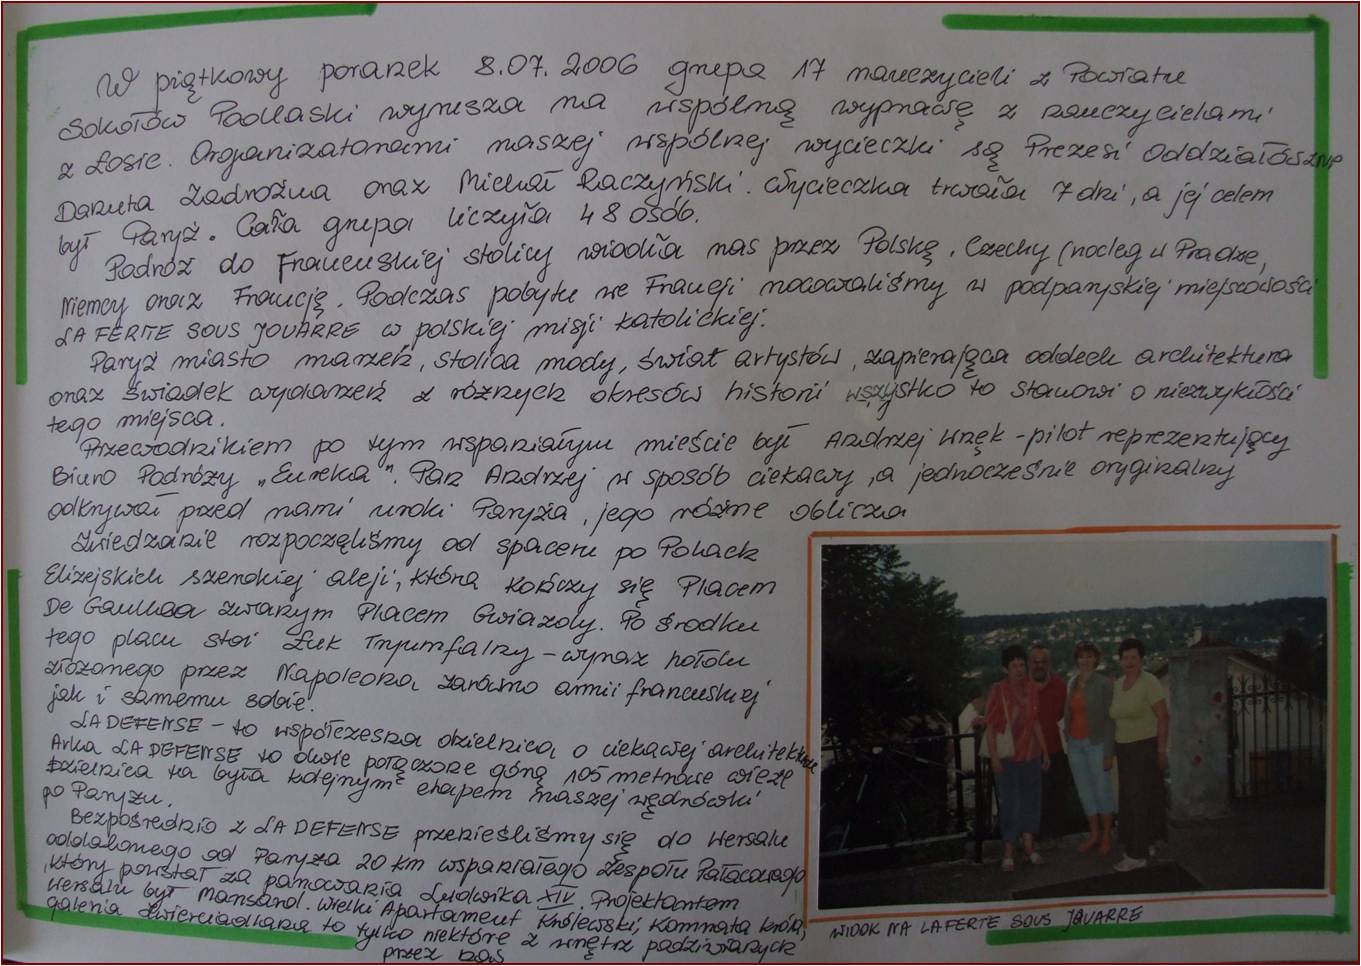 W piątkowy poranek 8.07.2006 grupa 17 nauczycieli z Powiatu
Sokołów Podlaski wyrusza na wspólną wyprawę z nauczycielami
z Łosic. Organizatorami naszej wspólnej wycieczki są Prezesi Oddziałów ZNP
Danuta Zadrożna oraz Michał Raczyński. Wycieczka trwała 7 dni, a jej celem
był Paryż. Cała grupa liczyła 48 osób.
Podróż do Francuskiej stolicy wiodła nas przez Polskę, Czechy (nocleg w Pradze,
Niemcy oraz Francję. Podczas pobytu we Francji nocowaliśmy w podparyskiej miejscowości
LA FERTE SOUS JOUARRE w polskiej misji katolickiej.
Paryż miasto marzeń, stolica mody, świat artystów, zapierająca oddech architektura
oraz świadek wydarzeń z różnych okresów historii wszystko to stanowi o niezwykłości
tego miejsca.
Przewodnikiem po tym wspaniałym mieście był Andrzej Wnęk - pilot reprezentujący
Biuro Podróży „Eureka”. Pan Andrzej w sposób ciekawy, a jednocześnie oryginalny
odkrywał przed nami uroki Paryża, jego różne oblicza
Zwiedzanie rozpoczęliśmy od spaceru po Polach
Elizejskich szerokiej alei, która kończy się Placem
De Gaullea zwanym Placem Gwiazdy. Po środku
tego placu stoi Łuk Tryumfalny - wyraz hołdu
złożonego przez Napoleona zarówno armii francuskiej
jak i samemu sobie.
LA DEFENSE - to współczesna dzielnica o ciekawej architekturze
Arka LA DEFENSE to dwie połączone górą 105 metrowe wieże
Dzielnica ta była kolejnym etapem naszej wędrówki
po Paryżu.
Bezpośrednio z LA DEFENSE przenieśliśmy się do Wersalu
oddalonego od Paryża 20 km wspaniałego Zespołu Pałacowego
który powstał za panowania Ludwika XIV. Projektantem
Wersalu był Mansard. Wielki Apartament Królewski, Komnata króla,
galeria Zwierciadlana to tylko niektóre z wnętrz podziwianych
przez nas
WIDOK NA LA FERTE SOUS JOUARRE